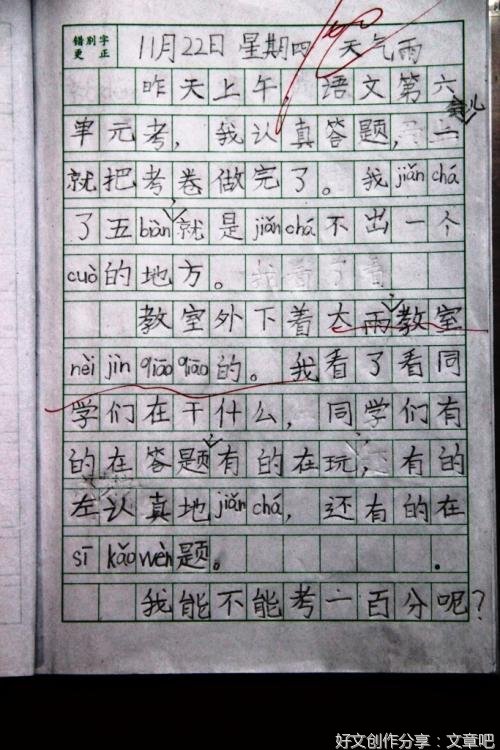 错别字
更 正
11月22日 星期四 天气雨
昨天上午,语文第六
单元考,我认真答题,一会儿
就把考卷做完了。我jiǎn chá
了五biàn就是jiǎn chá不出一个
cuò的地方。
教室外下着大雨教室
nèi jìn qiāo qiāo的。我看了看同
学们在干什么,同学们有
的在答题有的在玩,有的
左认真地jiǎn chá,还有的在
sī kǎo wèn题。
我能不能考一百分呢?
好文创作分享:文章吧